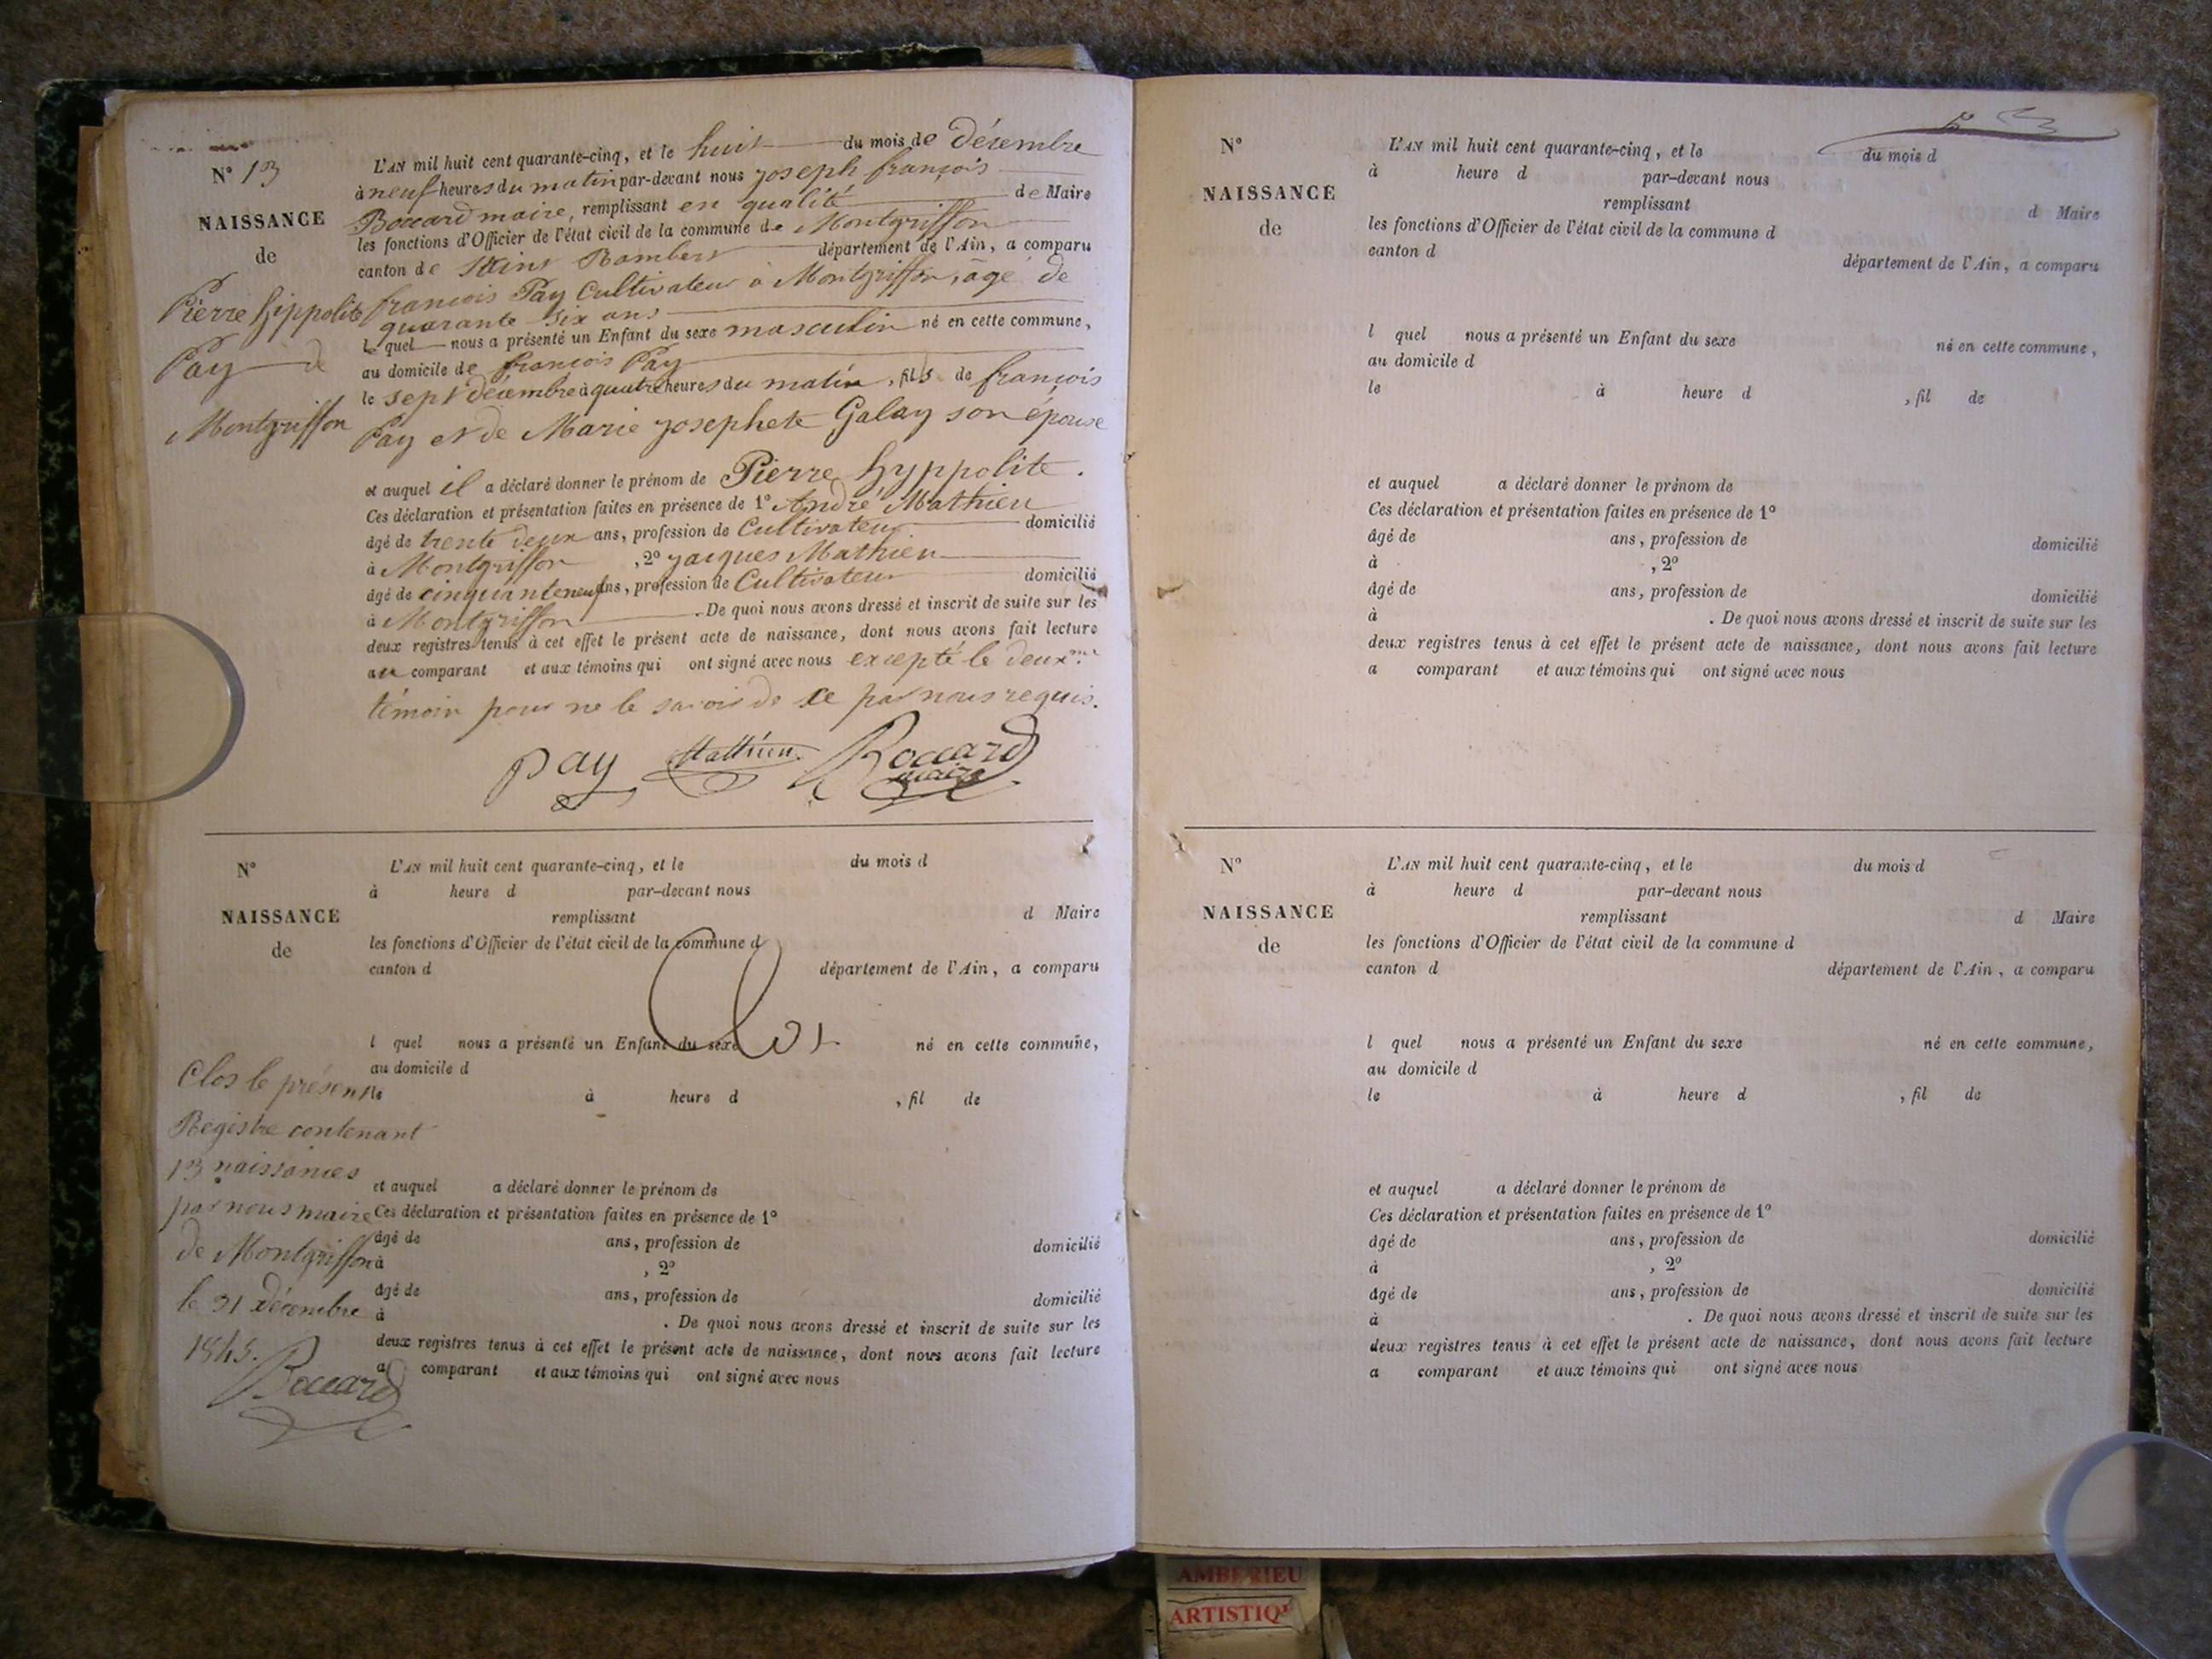 N° 13
NAISSANCE
de
Pierre hippolite
Pay de
Montgriffon
L'AN mil huit cent quarante-cinq, et le huit du mois de décembre
à neuf heures du matin par-devant nous joseph françois
Boccard maire, remplissant en qualité de Maire
les fonctions d'Officier de l'état civil de la commune de Montgriffon
canton de Saint Rambert département de l'Ain, a comparu
françois Pay Cultivateur à Montgriffon, âgé de
quarante six ans
le quel nous a présenté un Enfant du sexe masculin né en cette commune,
au domicile de françois Pay
le sept décembre à quatre heures du matin, fils de françois
Pay et de Marie josephete Galay son épouse
et auquel il a déclaré donner le prénom de Pierre hyppolite.
Ces déclaration et présentation faites en présence de 1° André Mathieu
âgé de trente deux ans, profession de Cultivateur domicilié
à Montgriffon, 2° jacques Mathieu
âgé de cinquante neuf ans, profession de Cultivateur domicilié
à Montgriffon. De quoi nous avons dressé et inscrit de suite sur les
deux registres tenus à cet effet le présent acte de naissance, dont nous avons fait lecture
au comparant et aux témoins qui ont signé avec nous excepté le deux.me
témoin pour ne le savoir de ce par nous requis.
Pay Mathieu Boccard
maire
N°
NAISSANCE
de
L'AN mil huit cent quarante-cinq, et le du mois d
à heure d par-devant nous
remplissant d Maire
les fonctions d'Officier de l'état civil de la commune d
canton d département de l'Ain, a comparu
Clos
l quel nous a présenté un Enfant du sexe né en cette commune,
au domicile d
le à heure d , fil de
et auquel a déclaré donner le prénom de
Ces déclaration et présentation faites en présence de 1°
âgé de ans, profession de domicilié
à , 2°
âgé de ans, profession de domicilié
à . De quoi nous avons dressé et inscrit de suite sur les
deux registres tenus à cet effet le présent acte de naissance, dont nous avons fait lecture
a comparant et aux témoins qui ont signé avec nous
Clos le présent
Registre contenant
13 naissances
par nous maire
de Montgriffon
le 31 décembre
1845.
Boccard
N°
NAISSANCE
de
L'AN mil huit cent quarante-cinq, et le du mois d
à heure d par-devant nous
remplissant d Maire
les fonctions d'Officier de l'état civil de la commune d
canton d département de l'Ain, a comparu
l quel nous a présenté un Enfant du sexe né en cette commune,
au domicile d
le à heure d , fil de
et auquel a déclaré donner le prénom de
Ces déclaration et présentation faites en présence de 1°
âgé de ans, profession de domicilié
à , 2°
âgé de ans, profession de domicilié
à . De quoi nous avons dressé et inscrit de suite sur les
deux registres tenus à cet effet le présent acte de naissance, dont nous avons fait lecture
a comparant et aux témoins qui ont signé avec nous
N°
NAISSANCE
de
L'AN mil huit cent quarante-cinq, et le du mois d
à heure d par-devant nous
remplissant d Maire
les fonctions d'Officier de l'état civil de la commune d
canton d département de l'Ain, a comparu
l quel nous a présenté un Enfant du sexe né en cette commune,
au domicile d
le à heure d , fil de
et auquel a déclaré donner le prénom de
Ces déclaration et présentation faites en présence de 1°
âgé de ans, profession de domicilié
à , 2°
âgé de ans, profession de domicilié
à . De quoi nous avons dressé et inscrit de suite sur les
deux registres tenus à cet effet le présent acte de naissance, dont nous avons fait lecture
a comparant et aux témoins qui ont signé avec nous
AMBERIEU
ARTISTIQ